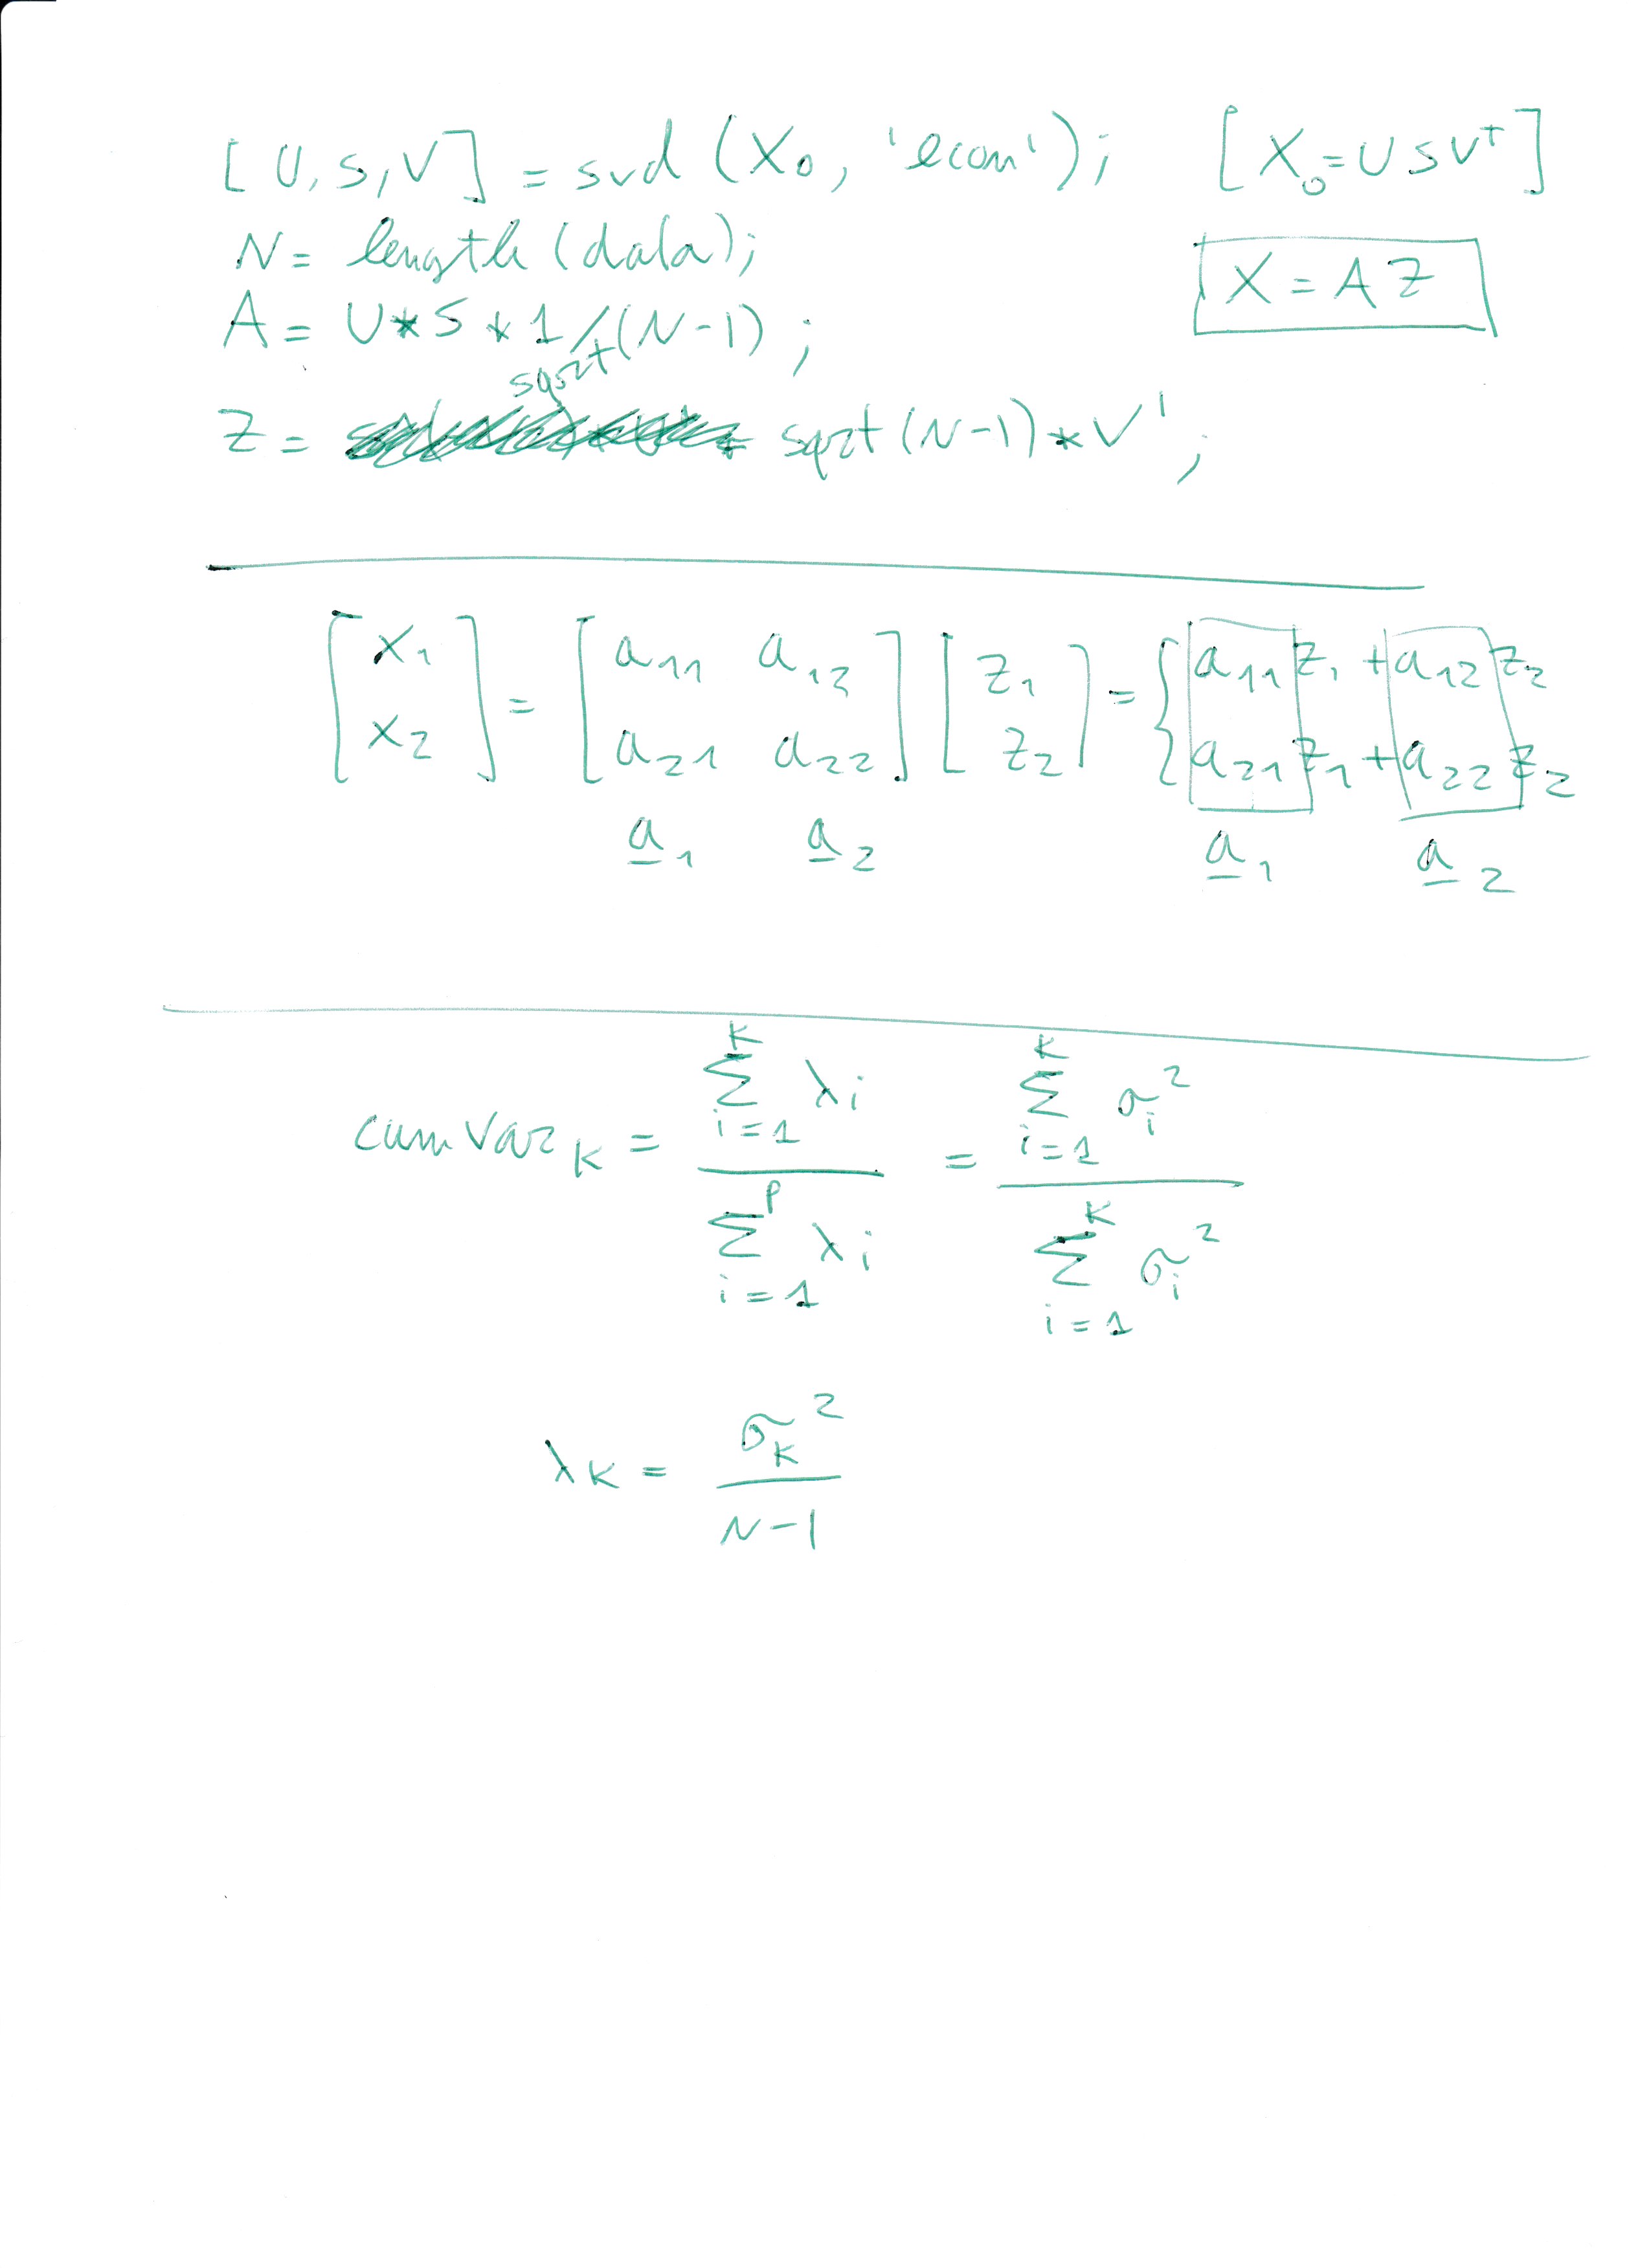 [U, S, V] = svd (X₀, 'econ'); [X₀ = U S Vᵀ]
N = length (data);
A = U * S * 1/sqrt(N-1); X = A Z
Z = sqrt (N-1) * V';
[x₁ x₂] = [a₁₁ a₁₂ a₂₁ a₂₂] [z₁ z₂] = { a₁₁ z₁ + a₁₂ z₂
a₂₁ z₁ + a₂₂ z₂
a₁ a₂ a₁ a₂
cumVar_K = ∑_{i=1}^{K} λᵢ / ∑_{i=1}^{P} λᵢ = ∑_{i=1}^{K} σᵢ² / ∑_{i=1}^{K} σᵢ²
λ_K = σ_K² / N-1